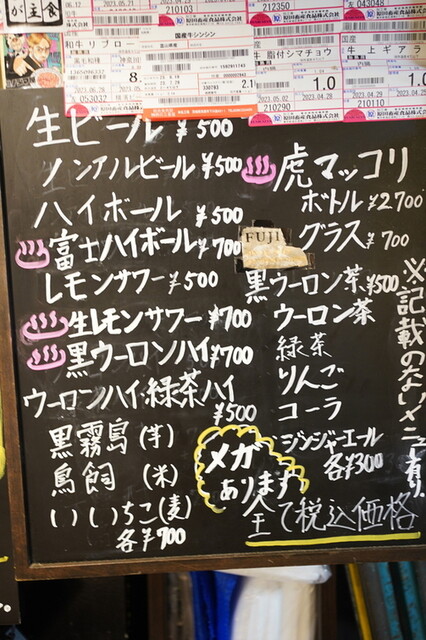 が主食
06.12
2023.05.21
2023.05.21
210103
国産牛シンシン
212350
左 043048
株式会社
和牛リブロー
高七松穂
神奈川
8.
053032
2.1
脂付シマチョウ
1.0
牛上ギアラ
1.0
210290
210110
2023.04.28
2023.04.28
生ビール ¥500
ノンアルビール ¥500
ハイボール ¥500
富士ハイボール ¥700
レモンサワー ¥500
生レモンサワー ¥700
黒ウーロンハイ ¥700
ウーロンハイ・緑茶ハイ
¥500
黒霧島 (芋)
鳥飼 (米)
いいちこ (麦)
各¥700
虎マッコリ
ボトル ¥2.700
グラス ¥700
FUJI
黒ウーロン茶 ¥500
ウーロン茶
緑茶
りんご
コーラ
ジンジャーエール
各¥300
メガ
あります
全て税込価格
※記載のないメニュー有り。